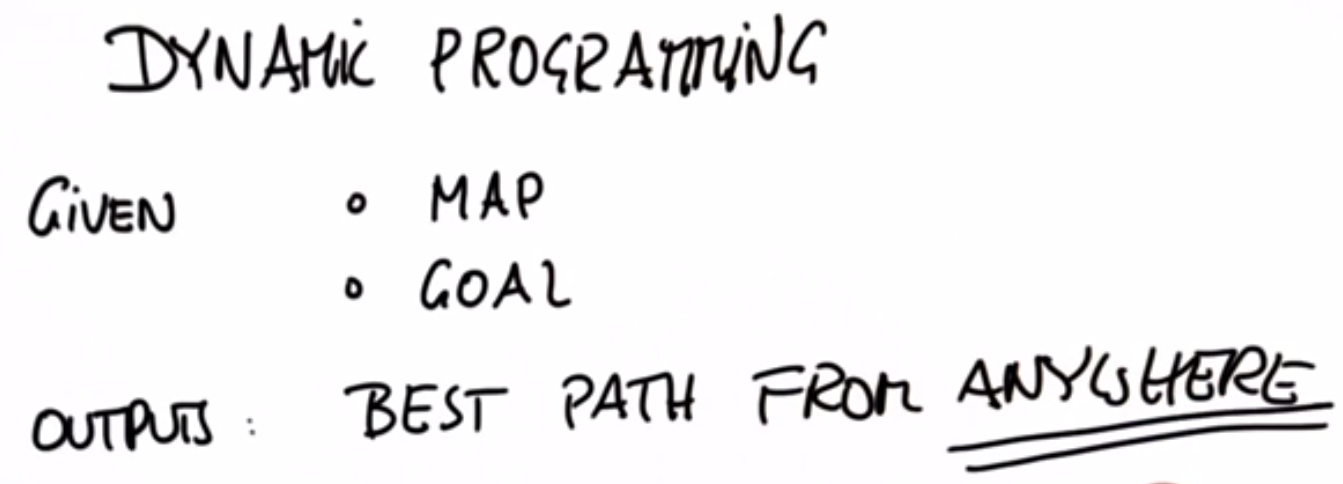 DYNAMIC PROGRAMMING
GIVEN ∘ MAP
∘ GOAL
OUTPUTS: BEST PATH FROM ANYWHERE